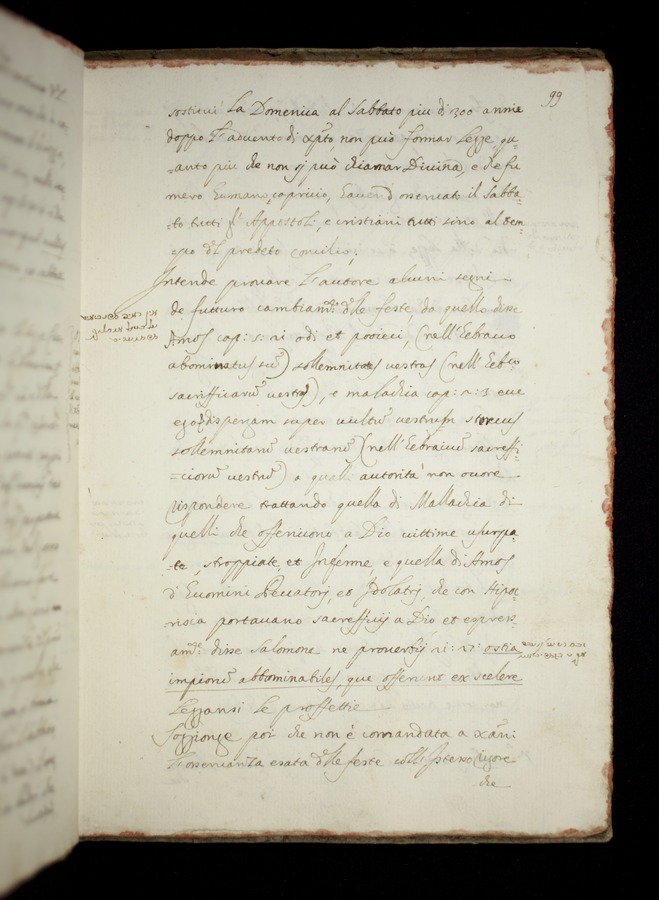 99
sostitui La Domenica al Sabbato piu di 300 annie
doppo L'advento di Xp̃to non può formar Legge, qu-
=anto piu che non si può chiamar Divina, e che fu
mero Eumano capricio, Eavend osservato il Sabba-
=to tutti gl' Appostoli, e cristiani tutti sino al tem-
=po dl predeto concilio.
Intende provare L'autore alcuni segni
de futturo cambiam.to dlle feste, da quello disse
Amos cap: 5: ni odi et proieci, (nell'Eebraico
abominatus su) sollemnitates vestras (nell'Eeb.co
sacrifficarũ vestrũ), e malachia cap: 2: 3 eue
ego dispergam super vultũ vestrum stercus
sollemnitatũ vestrarũ (nell'Eebraicũ sacreffi-
=ciorũ vestrũ) a quali autorità non ocore
rispondere trattando quella di Mallachia di
quelli che offerivono a Dio vittime usurpa-
=te, stroppiate, et Inferme, e quella di Amos
d' Euomini Pecatorj, et Idolatrj, che con Hipoc
risia portavano sacreffitij a Dio et espress-
am.te disse Salomone ne proverbij 21: 27: ostia
impiorũ abbominabiles, que offerunt ex scelere
Leggansi le proffettie
Soggionge poi che non è comandata a Xāni
L'osservanza esata dlle feste coll'istesso rigore
che